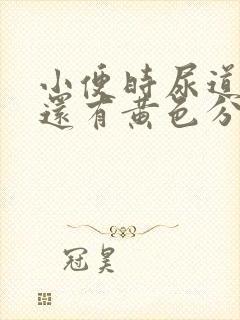 小便時尿道
還有黃色分
冠昊